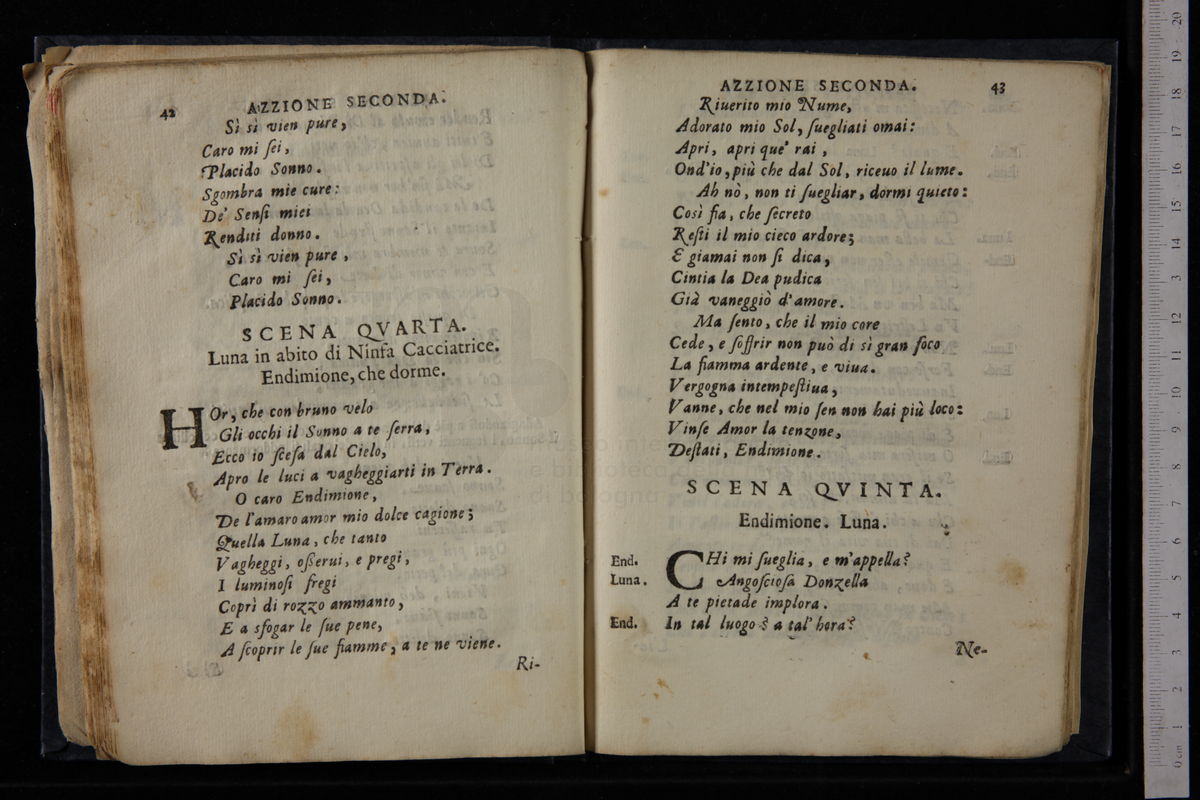 42 AZZIONE SECONDA.
Sì sì vien pure,
Caro mi ſei,
Placido Sonno.
Sgombra mie cure:
De' Senſi miei
Renditi donno.
Sì sì vien pure,
Caro mi ſei,
Placido Sonno.
SCENA QVARTA.
Luna in abito di Ninfa Cacciatrice.
Endimione, che dorme.
HOr, che con bruno velo
Gli occhi il Sonno a te ſerra,
Ecco io ſceſa dal Cielo,
Apro le luci a vagheggiarti in Terra.
O caro Endimione,
De l'amaro amor mio dolce cagione;
Quella Luna, che tanto
Vagheggi, oſſerui, e pregi,
I luminoſi fregi
Coprì di rozzo ammanto,
E a sfogar le ſue pene,
A ſcoprir le ſue fiamme, a te ne viene.
Ri-
AZZIONE SECONDA. 43
Riuerito mio Nume,
Adorato mio Sol, ſuegliati omai:
Apri, apri que' rai,
Ond'io, più che dal Sol, riceuo il lume.
Ah nò, non ti ſuegliar, dormi quieto:
Così fia, che ſecreto
Reſti il mio cieco ardore;
E giamai non ſi dica,
Cintia la Dea pudica
Già vaneggiò d'amore.
Ma ſento, che il mio core
Cede, e ſoffrir non può di sì gran foco
La fiamma ardente, e viua.
Vergogna intempeſtiua,
Vanne, che nel mio ſen non hai più loco:
Vinſe Amor la tenzone,
Deſtati, Endimione.
SCENA QVINTA.
Endimione. Luna.
End. CHi mi ſueglia, e m'appella?
Luna. Angoſcioſa Donzella
A te pietade implora.
End. In tal luogo? a tal' hora?
Ne-